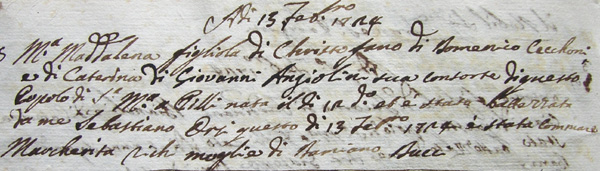 Adi 13 Febro 1724
Ma Maddalena figliola di Christofano di Domenico Cecchoni
e di Caterina di Giovanni Angiolini sua consorte di questo
Popolo di Sa Ma a Pilli nata il di 12 do et è stata Battezzata
da me Sebastiano questo di 13 Febro 1724 è stata Commare
Margherita moglie di Bucci